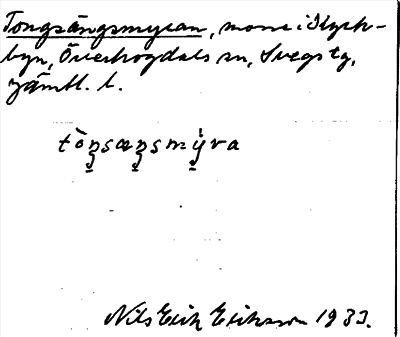 Tongsängsmyran, mosse i Kyrk-
byn, Överhogdals sn, Svegs tg,
Jämtl. l.
tòŋsæŋsmýra
Nils Erik Eriksson 1933.